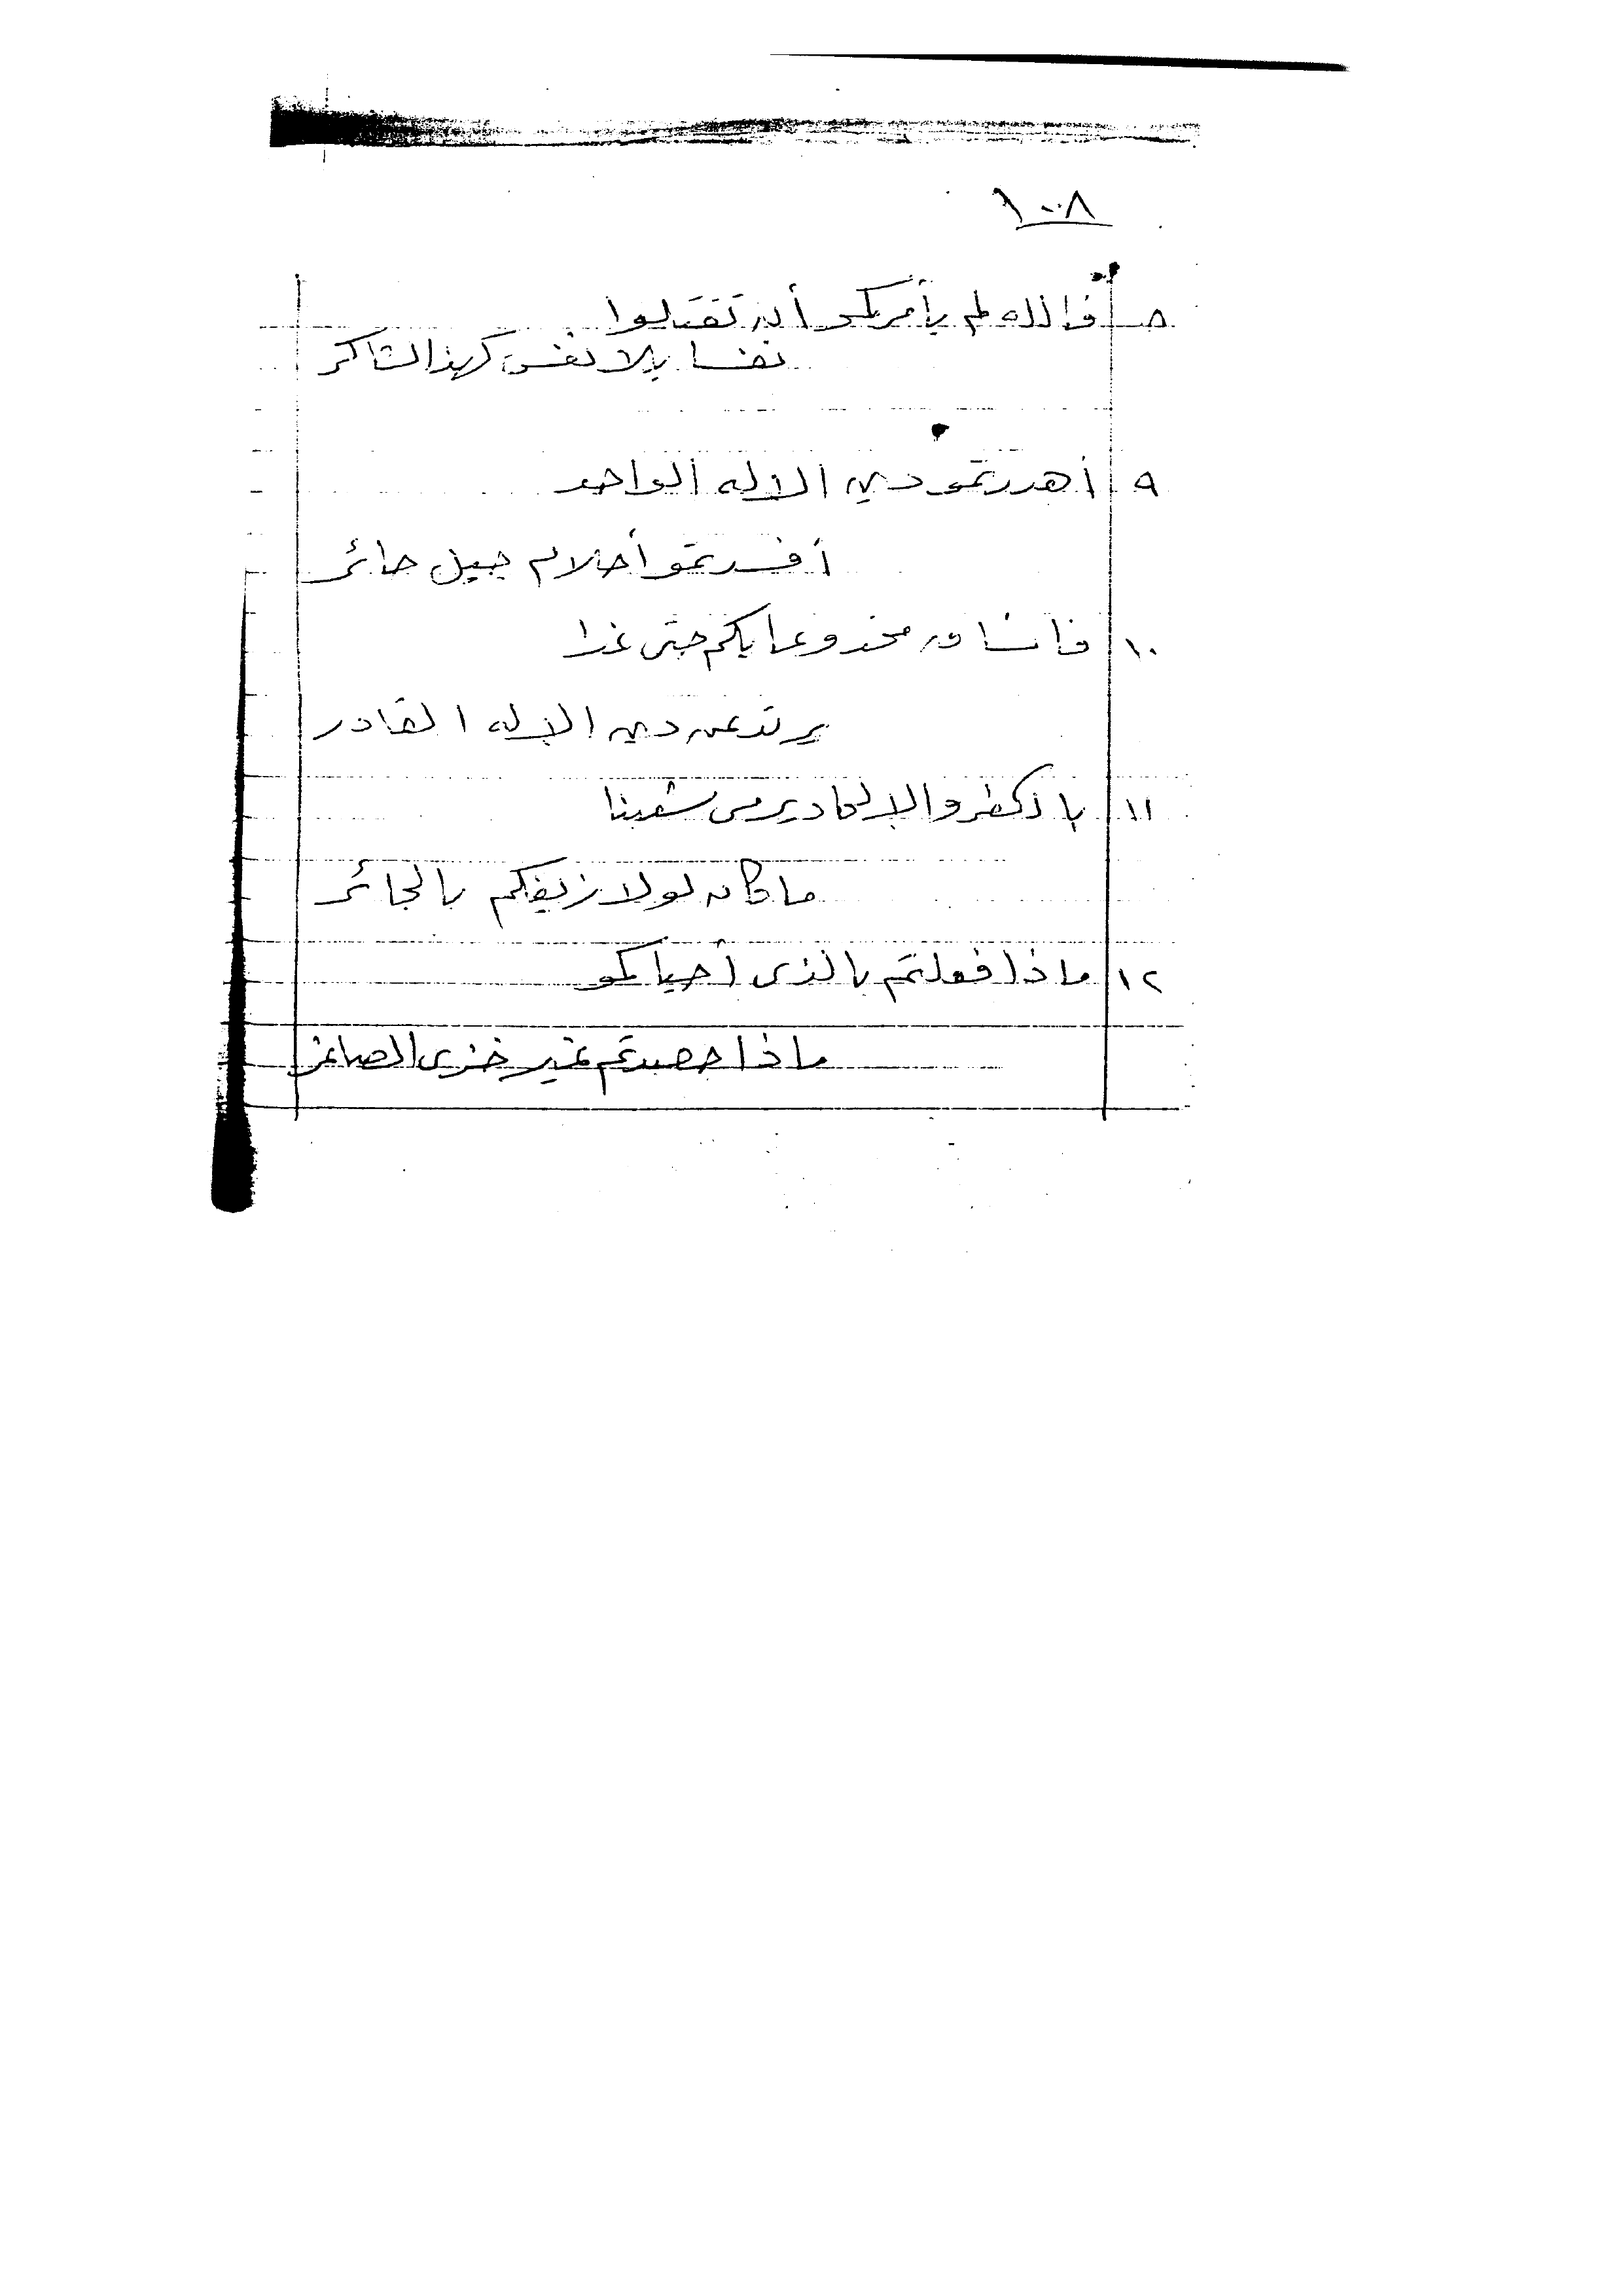 ١٠٠٨
٨ فالله لم يأمركمو أن تقتلوا
نفسا بلا نفس كهذا الشاكر
٩ أهدرتمو دين الاله الواحد
أفسدتمو أحلام جيل حائر
١٠ فانساق مخدوعا بكم حتى غدا
يرتد عن دين الإله القادر
١١ يا ذكـ والإلحاد يرمى شعبنا
ما كان لولا زيفكم بالجائر
١٢ ماذا فعلتم بالذى أحياكمو
ماذا حصدتم غير خزى الصاغر